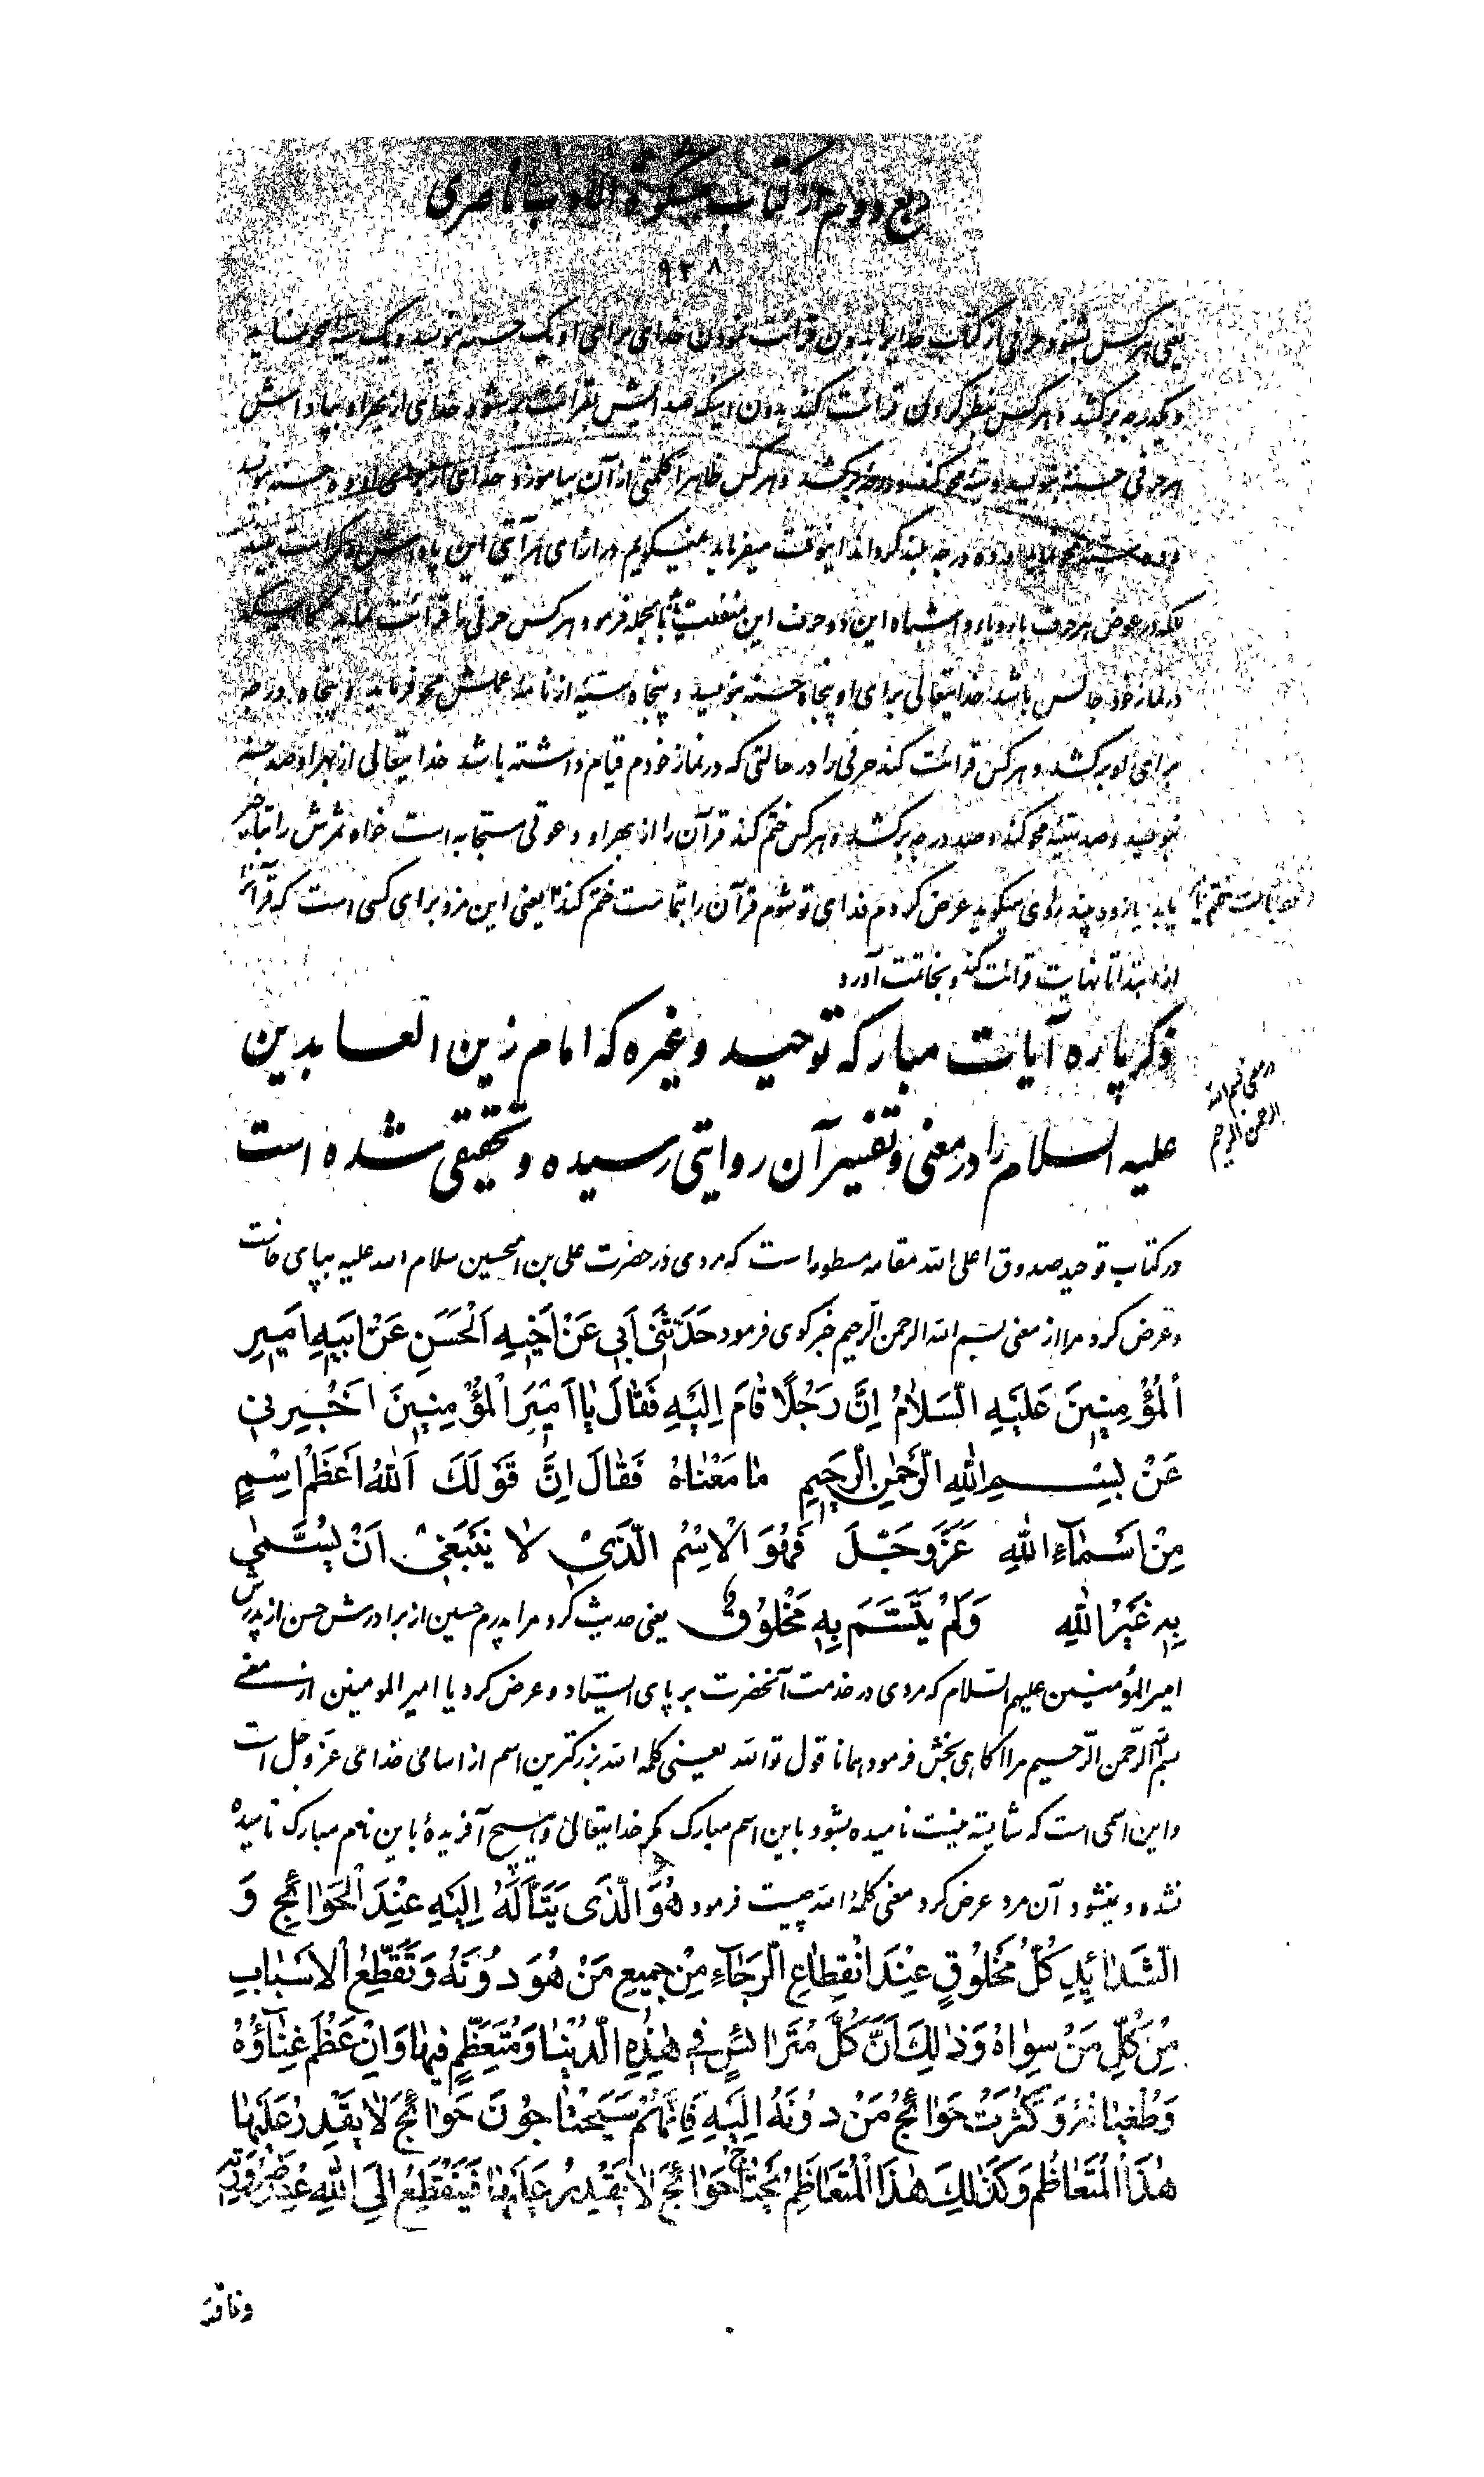 ربع دوم از کتاب مشکوة الادب ناصری
۹۳۸
یعنی هر کس بشنود حرفی از کتاب خدایرا بدون قرائت نمودن خدای برای او یک حسنه بنویسد و یک سیئه محو نماید
و یکدرجه برکشد و هر کس بنظر کردن قرائت کند بدون اینکه صدایش بقرائت بر شود خدای از بهر او بپاداش
هر حرفی حسنه بنویسد و سیئه محو کند و درجه برکشد و هر کس ظاهرا کلمتی از آن بیاموزد خدای از برای او ده حسنه بنویسد
و ده سیئه محو نماید و ده درجه بلند گرداند آنوقت میفرماید نمیگویم در ازای هر آیتی این پاداش و کرامت بیند
بلکه در عوض هر حرف باء و یاء و اشباه این دو حرف این منقبت یابد بالجمله فرمود هر کس حرفی را قرائت نماید گاهیکه
در نماز خود جالس باشد خدایتعالی برای او پنجاه حسنه بنویسد و پنجاه سیئه از نامه عملش محو فرماید و پنجاه درجه
برای او برکشد و هر کس قرائت کند حرفی را در حالتی که در نماز خودم قیام داشته باشد خدایتعالی از بهر او صد حسنه
بنویسد و صد سیئه محو کند و صد درجه برکشد و هر کس ختم کند قرآن را از بهر او دعوتی مستجابه است خواه ثمرش را بتأخیر
یابد یا زود بیند راوی میگوید عرض کردم فدای تو شوم قرآن را بتمامت ختم کند یعنی این مزد برای کسی است که قرآنرا
از ابتدا تا نهایت قرائت کند و بخاتمت آورد
ذکر پاره آیات مبارکه توحید و غیره که امام زین العابدین
در معنی بسم الله
الرحمن الرحیم
علیه السلام را در معنی و تفسیر آن روایتی رسیده و تحقیقی شده است
در کتاب توحید صدوق اعلی الله مقامه مسطور است که مردی در حضرت علی بن الحسین سلام الله علیه بپای خاست
و عرض کرد مرا از معنی بسم الله الرحمن الرحیم خبر گوی فرمود حَدَّثَنی اَبی عَنْ اَخیهِ اَلْحَسَنِ عَنْ اَبیهِ اَمیرِ
اَلْمُؤْمِنینَ عَلَیْهِ السَّلامُ اِنَّ رَجُلًا قامَ اِلَیْهِ فَقالَ یا اَمیرَ الْمُؤْمِنینَ اَخْبِرْنی
عَنْ بِسْمِ اللهِ الرَّحْمنِ الرَّحیمِ ما مَعْناهُ فَقالَ اِنَّ قَوْلَکَ اَللهُ اَعْظَمُ اِسْمٍ
مِنْ اَسْماءِ اللهِ عَزَّ وَجَلَّ فَهُوَ الْاِسْمُ الَّذی لا یَنْبَغی اَنْ یُسَمّی
بِهِ غَیْرُ اللهِ وَلَمْ یَتَسَمَّ بِهِ مَخْلُوقٌ یعنی حدیث کرد مرا پدرم حسین از برادرش حسن از پدرش
امیرالمؤمنین علیهم السلام که مردی در خدمت آنحضرت بر پای ایستاد و عرض کرد یا امیر المومنین از معنی
بسم الله الرحمن الرحیم مرا آگاهی بخش فرمود همانا قول تو الله یعنی کلمه الله بزرگترین اسم از اسامی خدای عز و جل است
و این اسمی است که شایسته نیست نامیده بشود باین اسم مبارک مگر خدایتعالی و هیچ آفریدهٔ باین نام مبارک نامیده
نشده و نمیشود آن مرد عرض کرد معنی کلمهٔ الله چیست فرمود هُوَ الَّذی یَتَأَلَّهُ اِلَیْهِ عِنْدَ الْحَوائِجِ وَ
الشَّدائِدِ کُلُّ مَخْلُوقٍ عِنْدَ انْقِطاعِ الرَّجاءِ مِنْ جَمیعِ مَنْ هُوَ دُونَهُ وَتَقَطُّعِ الْاَسْبابِ
مِنْ کُلِّ مَنْ سِواهُ وَذلِکَ اَنَّ کُلَّ مُتَرَائِسٍ فی هذِهِ الدُّنْیا وَمُتَعَظِّمٍ فیها وَاِنْ عَظُمَ غِناؤُهُ
وَطُغْیانُهُ وَکَثُرَتْ حَوائِجُ مَنْ دُونَهُ اِلَیْهِ فَاِنَّهُمْ سَیَحْتاجُونَ حَوائِجَ لا یَقْدِرُ عَلَیْها
هذَا الْمُتَعاظِمُ وَکَذلِکَ هذَا الْمُتَعاظِمُ یَحْتاجُ حَوائِجَ لا یَقْدِرُ عَلَیْها فَیَنْقَطِعُ اِلَی اللهِ عِنْدَ ضَرُورَتِهِ
وفاقته